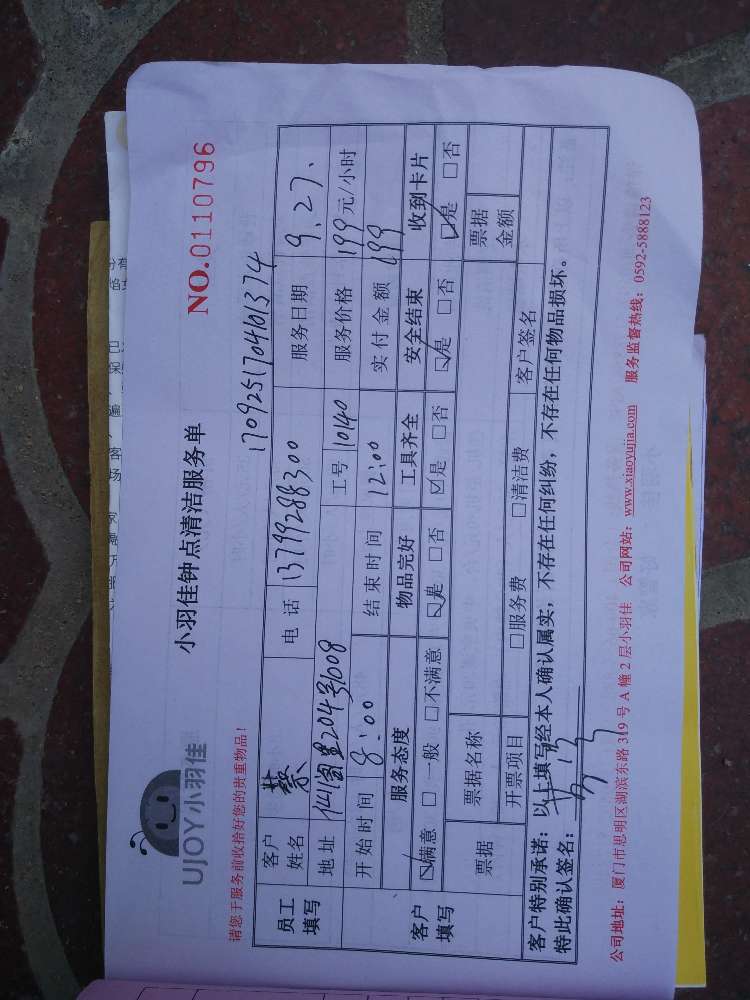 UJOY小羽佳
小羽佳钟点清洁服务单
NO.0110796
请您于服务前收拾好您的贵重物品!
1709251704101374
员工填写 客户姓名 蔡 电话 13799288300 服务日期 9.27.
地址 204号1008 工号 10140 服务价格 199元/小时
开始时间 8:00 结束时间 12:00 实付金额 199
客户填写 服务态度 物品完好 工具齐全 安全结束 收到卡片
☑满意 □一般 □不满意 ☑是 □否 ☑是 □否 ☑是 □否 ☑是 □否
票据 票据名称 票据金额
开票项目 □服务费 □清洁费 客户签名
客户特别承诺:以上填写经本人确认属实,不存在任何纠纷,不存在任何物品损坏。
特此确认签名:
公司地址:厦门市思明区湖滨东路 319 号 A 幢 2 层小羽佳 公司网站:www.xiaoyujia.com 服务监督热线:0592-5888123